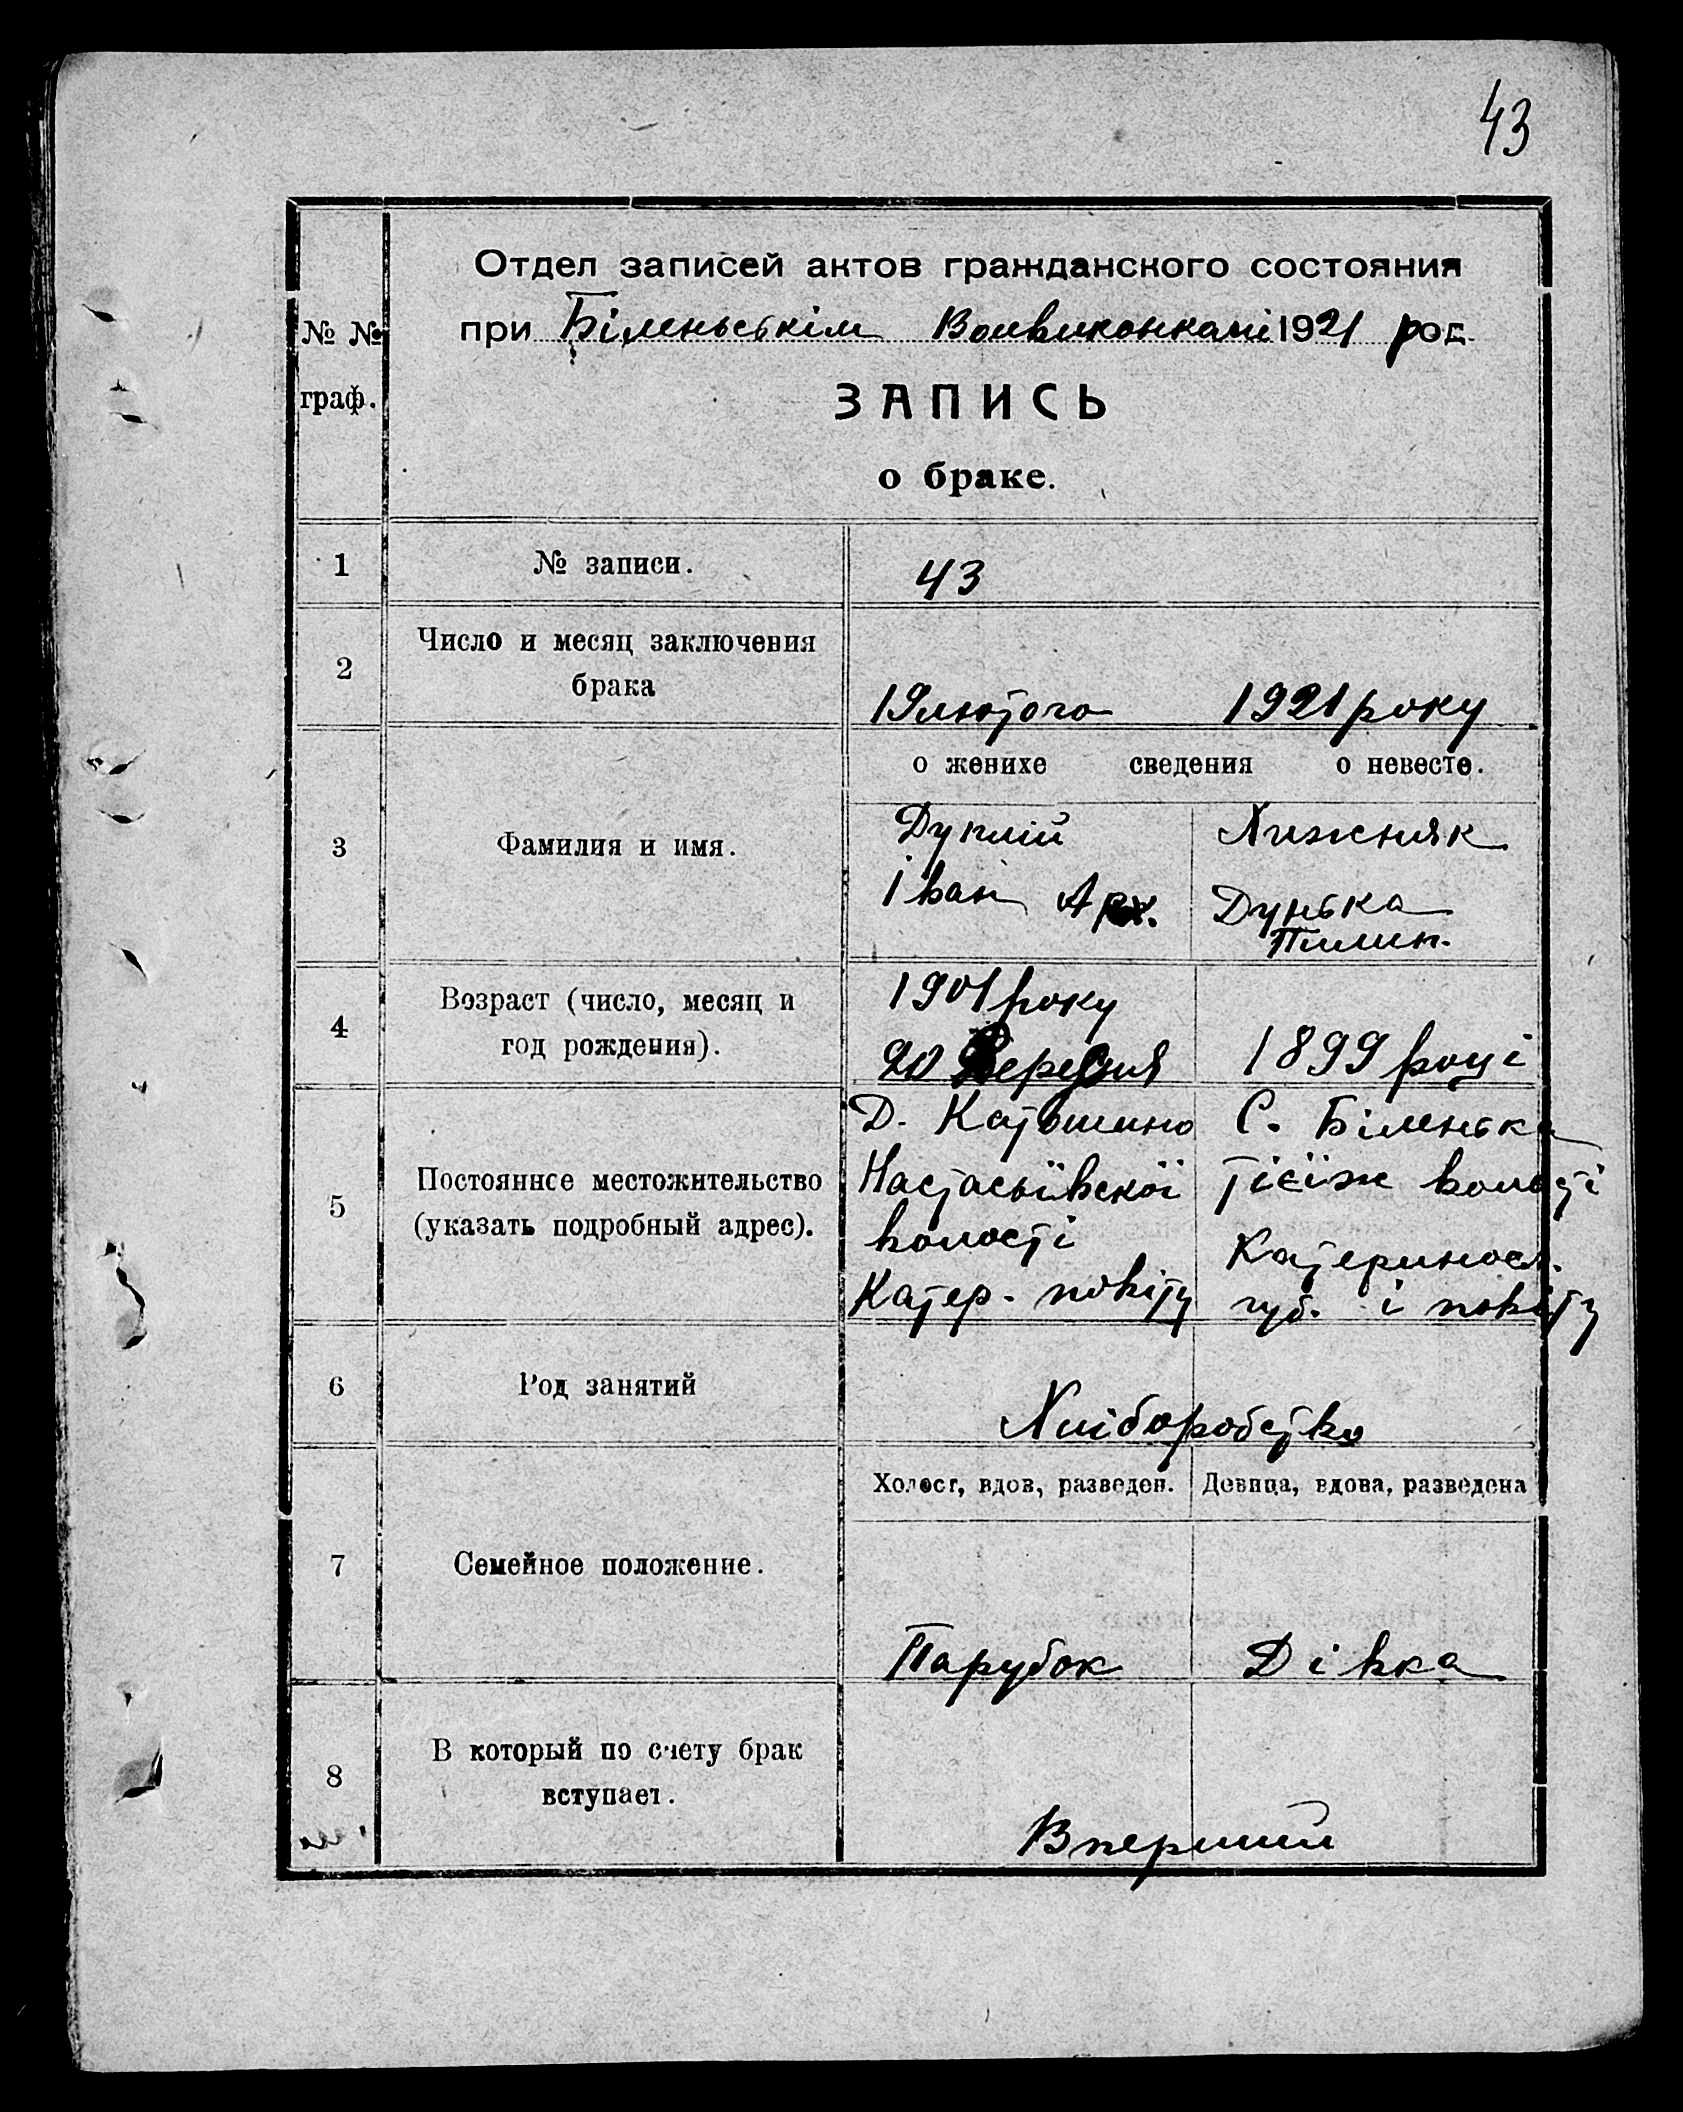 43
Отдел записей актов гражданского состояния
при Біленьськім Волвиконкомі 1921 год.
№ №
граф.
ЗАПИСЬ
о браке.
1 № записи. 43
2 Число и месяц заключения
брака
19 лютого 1921 року
о женихе сведения о невесте.
3 Фамилия и имя.
Дуплій Хижняк
Іван Арх. Дунька
Пилип.
4 Возраст (число, месяц и
год рождения).
1901 року
20 Вересня 1899 році
5 Постоянное местожительство
(указать подробный адрес).
Д. С. Біленька
Настасьївскої тієїж волості
волості Катериносл.
Катер. повіту губ. і повіту
6 Род занятий
Хліборобство
Холост, вдов, разведен. Девица, вдова, разведена
7 Семейное положение.
Парубок Дівка
8 В который по счету брак
вступает.
Вперший